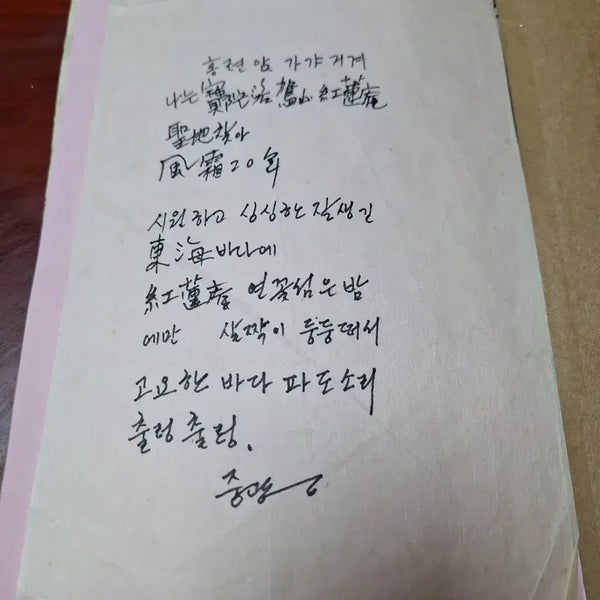 홍련암 가갸거겨
나는 寶陀洛 紅蓮庵
聖地찾아
風霜20年
시원하고 싱싱한 잘생긴
東海바다에
紅蓮庵 연꽃섬은 밤
에만 살짝이 둥둥떠서
고요한 바다 파도소리
출렁출렁.
중광